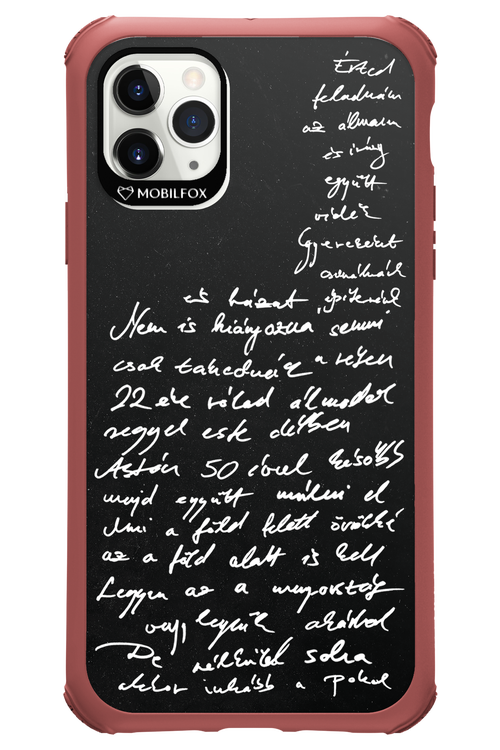 MOBILFOX
Érted
feladnám
az álmam
és így
együtt
vidék
Gyerekeket
csinálnánk
és házat építenénk
Nem is hiányozna semmi
csak a réten
22 éve rólad álmodok
reggel este délben
Aztán 50 évvel később
majd együtt múlni el
Ami a föld felett örökké
az a föld alatt is kell
Legyen az a mennyország
vagy legyünk akárhol
De nélküled soha
akkor inkább a pokol